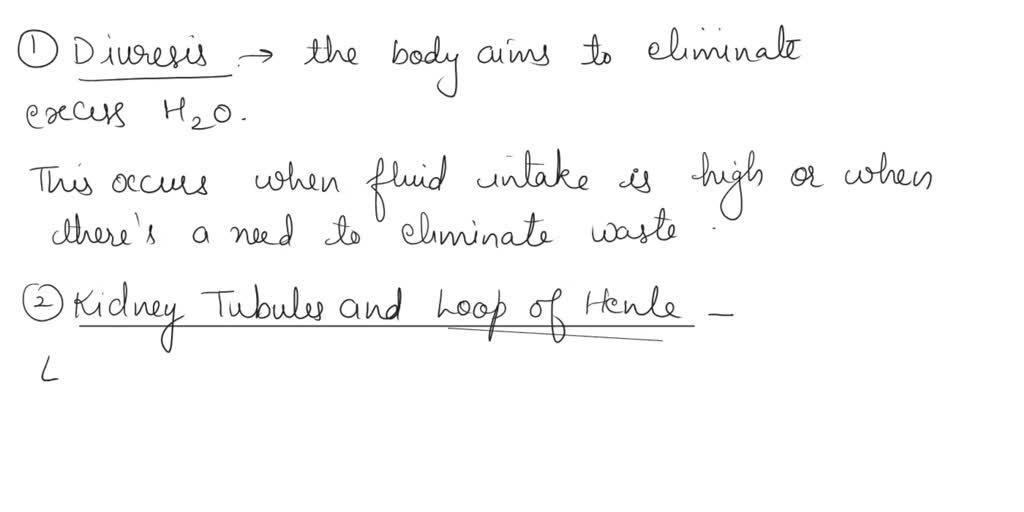 ① Diuresis → the body aims to eliminate
excess H₂O.
This occurs when fluid intake is high or when
there's a need to eliminate waste.
② Kidney Tubules and Loop of Henle –
L